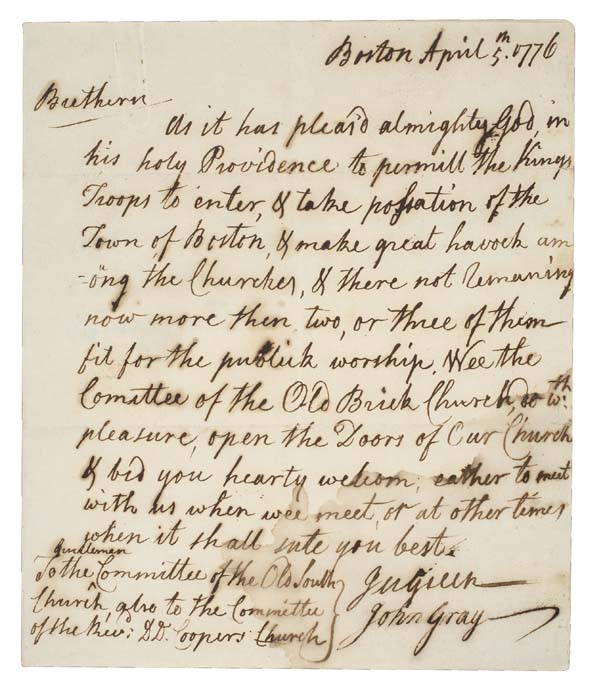 Boston April 5.th 1776
Brethern
As it has pleas'd almighty God, in
his holy Providence to permitt the Kings
Troops to enter, & take possation of the
Town of Boston, & make great havock am
-ong the Churches, & there not Remaning
now more then two, or three of them
fit for the publick worship, Wee the
Comittee of the Old Brick Church, do wth.
pleasure, open the Doors of Our Church
& bid you hearty welcom, eather to meet
with us when wee meet, or at other times
when it shall sute you best.
gentlemen
To the Committee of the Old South
Church, also to the Committee
of the Revd: DD. Coopers Church
Green
John Gray